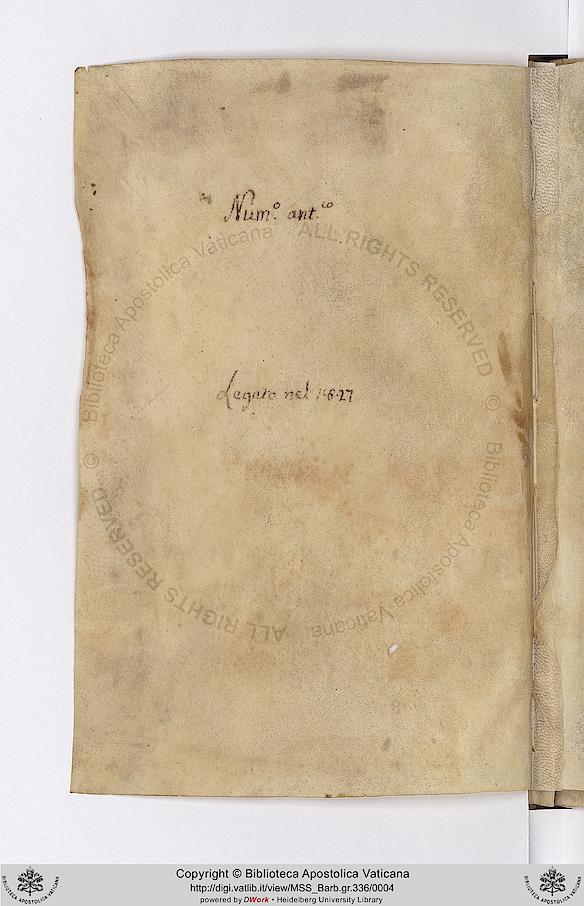 Num.º ant.co
Legato nel 1827
Biblioteca Apostolica Vaticana ALL RIGHTS RESERVED ©
Biblioteca Apostolica Vaticana ALL RIGHTS RESERVED ©
Copyright © Biblioteca Apostolica Vaticana
http://digi.vatlib.it/view/MSS_Barb.gr.336/0004
powered by DWork • Heidelberg University Library
BIBLIOTECA APOSTOLICA VATICANA
BIBLIOTECA APOSTOLICA VATICANA